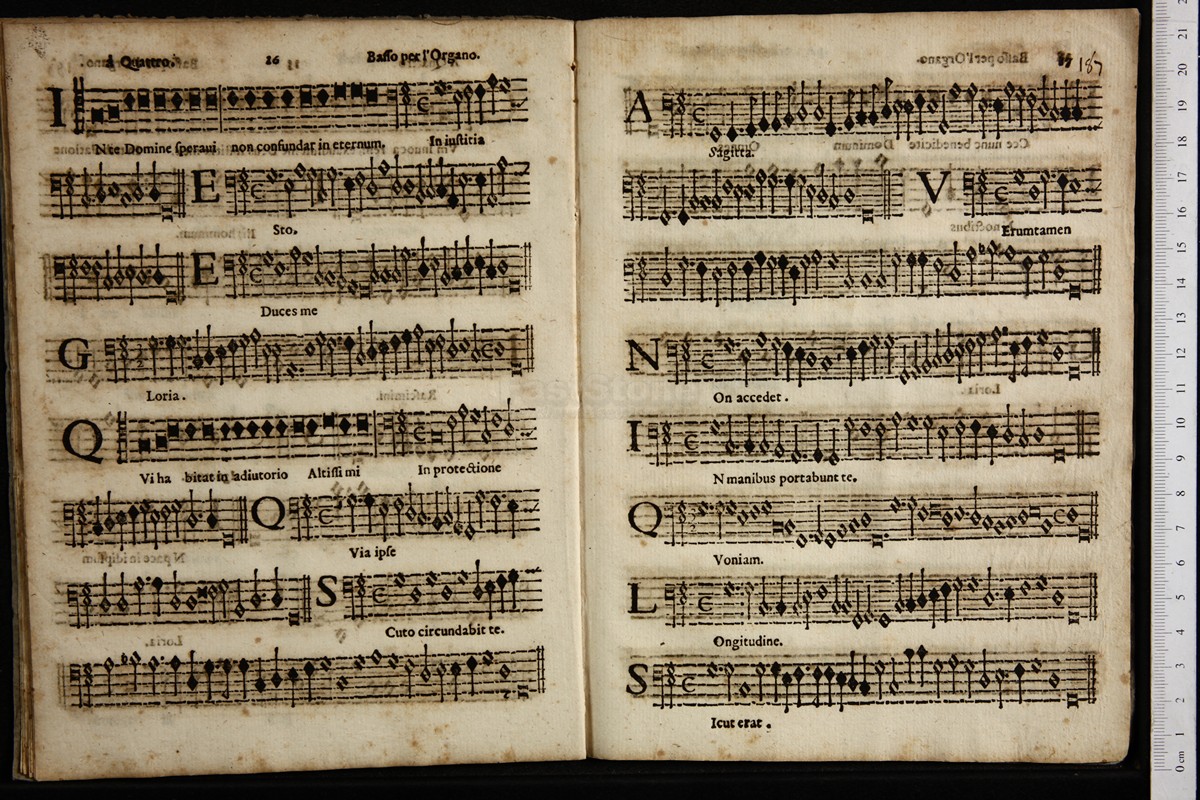 à Quattro. 16 Basso per l'Organo.
I
N te Domine ſperaui non confundar in eternum. In iuſtitia
E
Sto.
E
Duces me
G
Loria.
Q
Vi ha bitat in adiutorio Altiſſi mi In protectione
Q
Via ipſe
S
Cuto circundabit te.
187
A
Sagitta.
V
Erumtamen
N
On accedet.
I
N manibus portabunt te.
Q
Voniam.
L
Ongitudine.
S
Icut erat.
21
20
19
18
17
16
15
14
13
12
11
10
9
8
7
6
5
4
3
2
1
0 cm